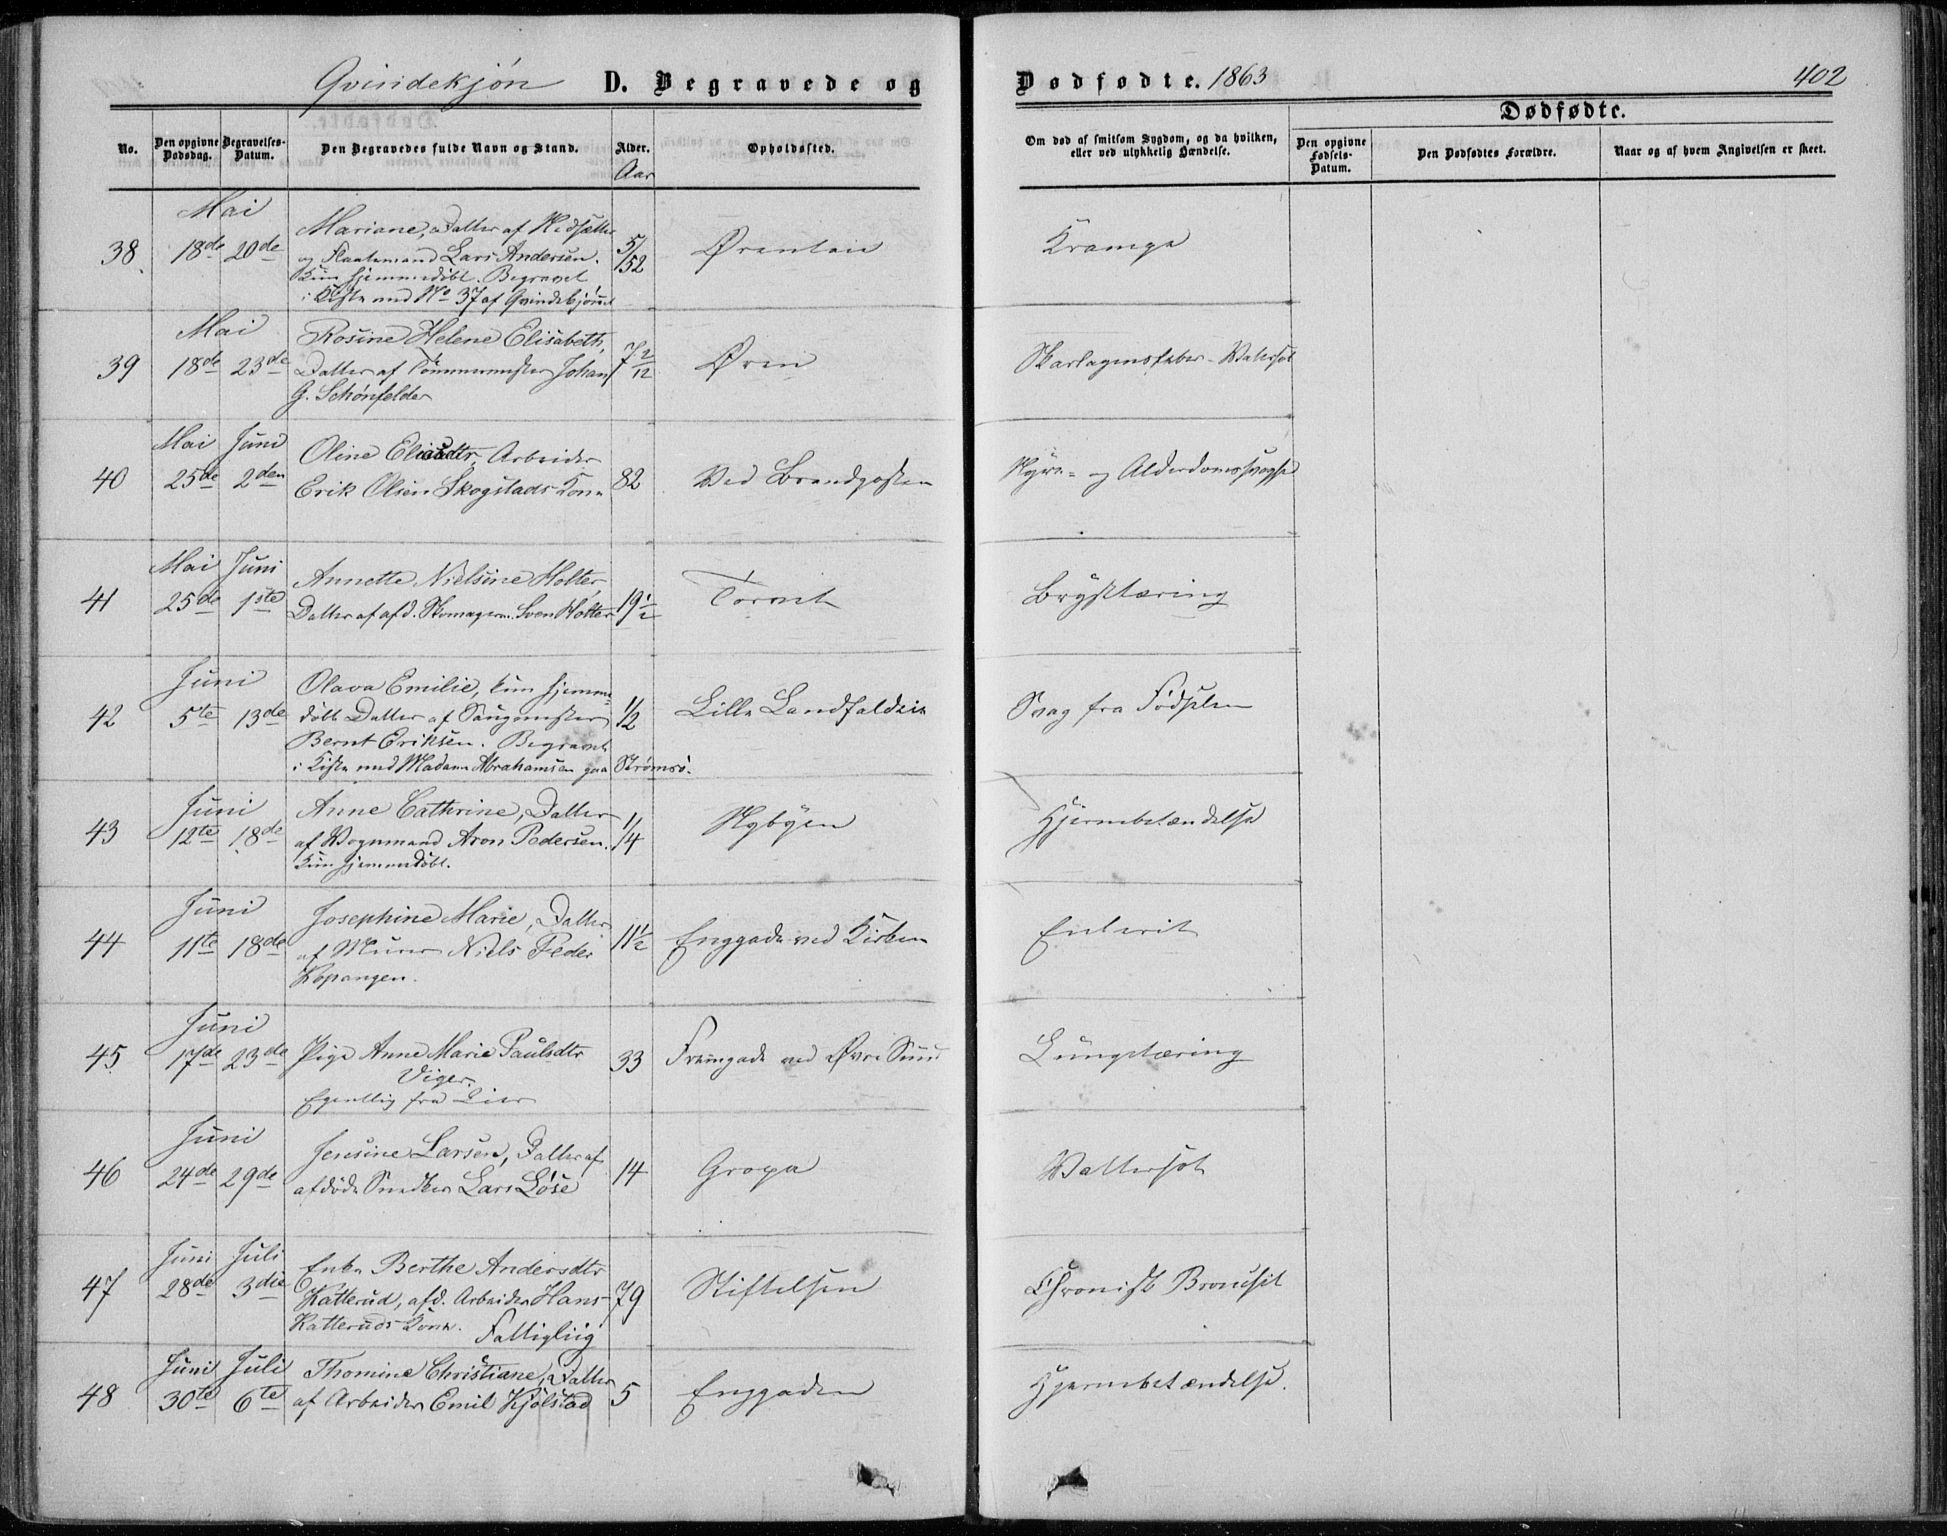 Qvindekjøn D. Begravede og Dødfødte. 1863 402
No. Den opgivne Dødsdag. Begravelses-Datum. Den Begravedes fulde Navn og Stand. Alder. Aar Opholdssted. Om død af smitsom Sygdom, og da hvilken, eller ved ulykkelig Hændelse.
Dødfødte.
Den opgivne Fødsels-Datum. Den Dødfødtes Forældre. Naar og af hvem Angivelsen er skeet.
Mai
38 18de 20de Mariane, Datter af
og Lars Andersen. 5/52 Krampe
Kun hjemmedøbt. Begravet
i Kiste med No 37 af Qvindekjønnet
Mai
39 18de 23de Rosine Helene Elisabeth,
Datter af Tømmermester Johan 7 2/12 Øren Skarlagensfeber - Vatersot
G. Schønfelder
Mai Juni
40 25de 2den Oline Arbeider
Erik Olsen Skogstads Kone 82 Ved Brandposten og Alderdomssvaghed
Mai Juni
41 25de 1ste Annette Nielsine Holter
Datter af afd. Skomagerm. Sven Holter 19 1/2 Torvet Brysttæring
Juni
42 5te 13de Olava Emilie, kun hjemme-
døbt Datter af Saugmester 1/2 Lille Landfaldøie Svag fra Fødselen
Bernt Eriksen. Begravet
i Kiste med Madam Abrahamsen paa Strømsø.
Juni
43 12te 18de Anne Cathrine, Datter
af Vognmand Aron Pedersen. 1/4 Nybyen Hjernebetændelse
Kun hjemmedøbt.
Juni
44 11te 18de Josephine Marie, Datter
af Murer Niels Peder 11 1/2 Enggade ved Kirken
Kopangen.
Juni
45 17de 23de Pige Anne Marie Paulsdtr 33 Fremgade ved Øvre Sund Lungetæring
Viger.
Egentlig fra Lier
Juni
46 24de 29de Jensine Larsen, Datter af
afdøde Snedker Lars Løse 14 Gropa Vattersot
Juni Juli
47 28de 3die Enke Berthe Andersdtr
Katterud, afd. Arbeider Hans 79 Stiftelsen Chronisk Bronchit
Katteruds Kone. Fattiglig
Juni Juli
48 30te 6te Thomine Christiane, Datter
af Arbeider Emil Kjølstad 5 Enggaden Hjernebetændelse.